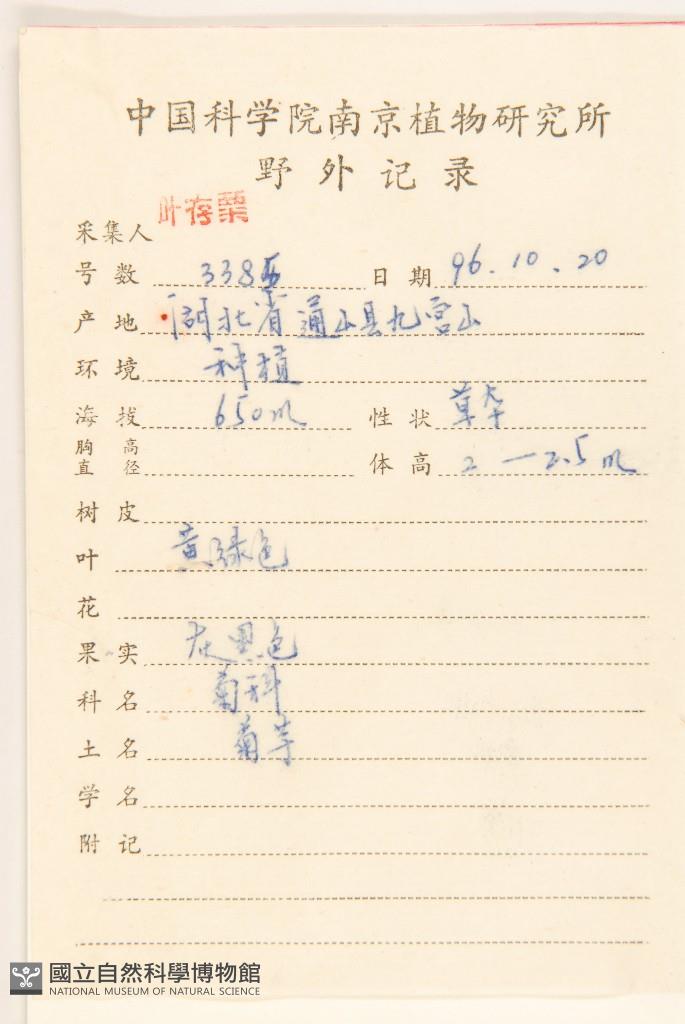 中国科学院南京植物研究所
野外记录
采集人 叶存粟
号数 3385 日期 96.10.20
产地 湖北省通山县九宫山
环境 种植
海拔 650m 性状 草本
胸高直径 体高 2—2.5m
树皮
叶 黄绿色
花
果实 灰黑色
科名 菊科
土名 菊芋
学名
附记
國立自然科學博物館
NATIONAL MUSEUM OF NATURAL SCIENCE